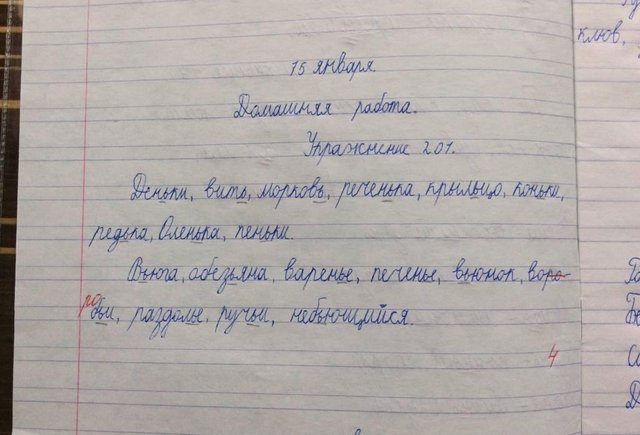 клюв,
15 января.
Домашняя работа.
Упражнение 201.
Деньки, вить, морковь, реченька, крыльцо, коньки,
редька, Оленька, пеньки.
Вьюга, обезьяна, варенье, печенье, вьюнок, воро-
ро
бьи, раздолье, ручьи, небьющийся.
4